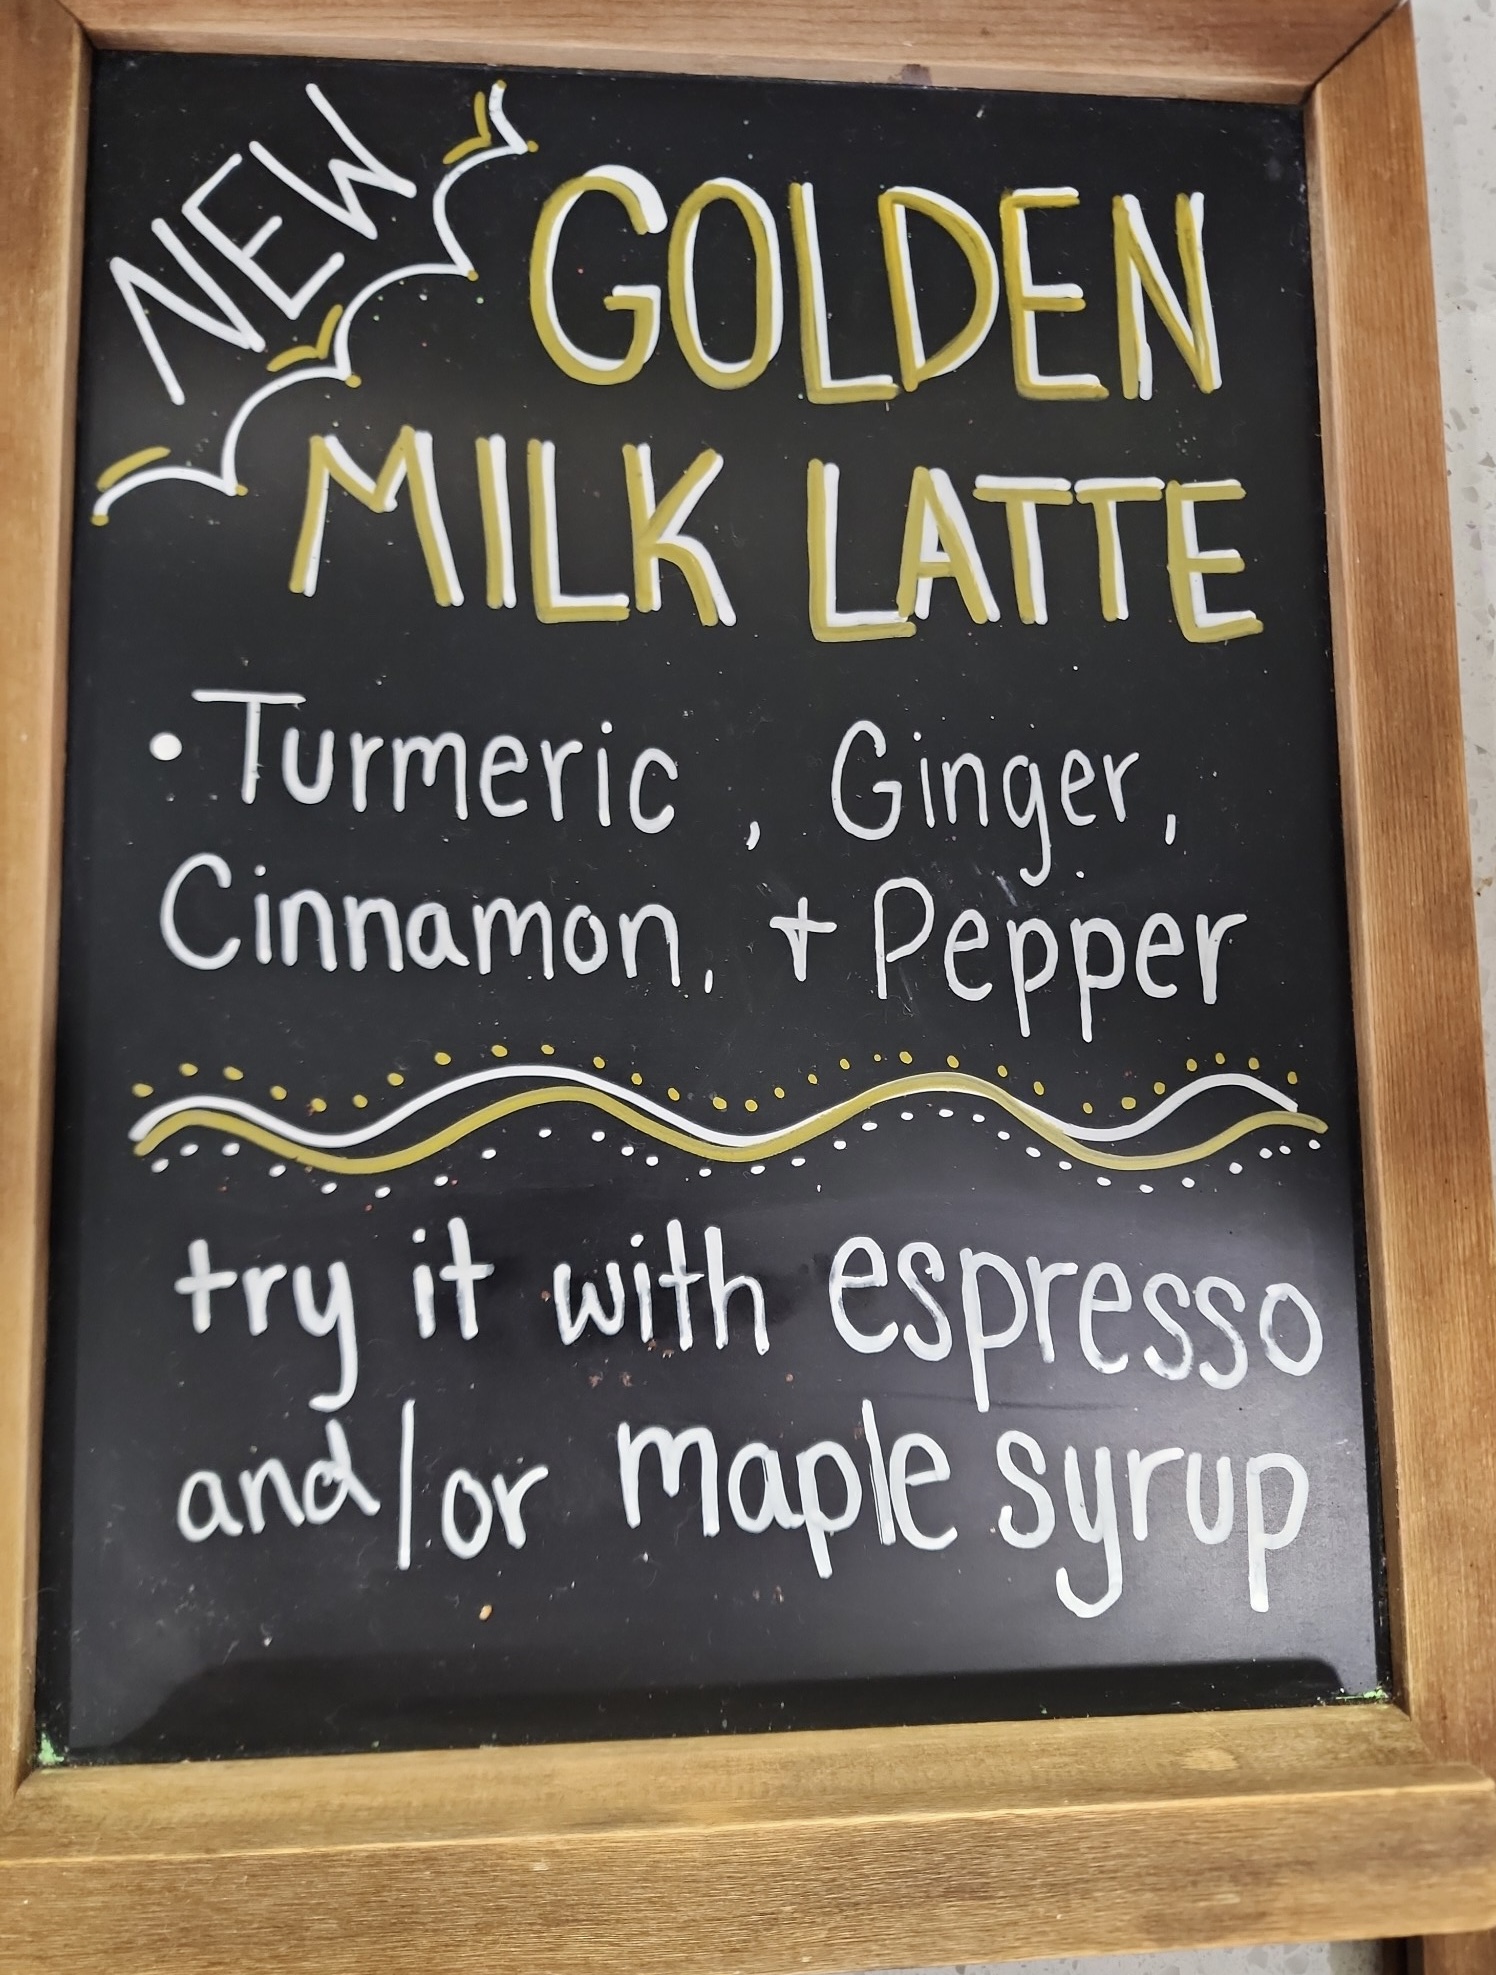 NEW
GOLDEN
MILK LATTE
• Turmeric, Ginger,
Cinnamon, + Pepper
try it with espresso
and/or maple syrup